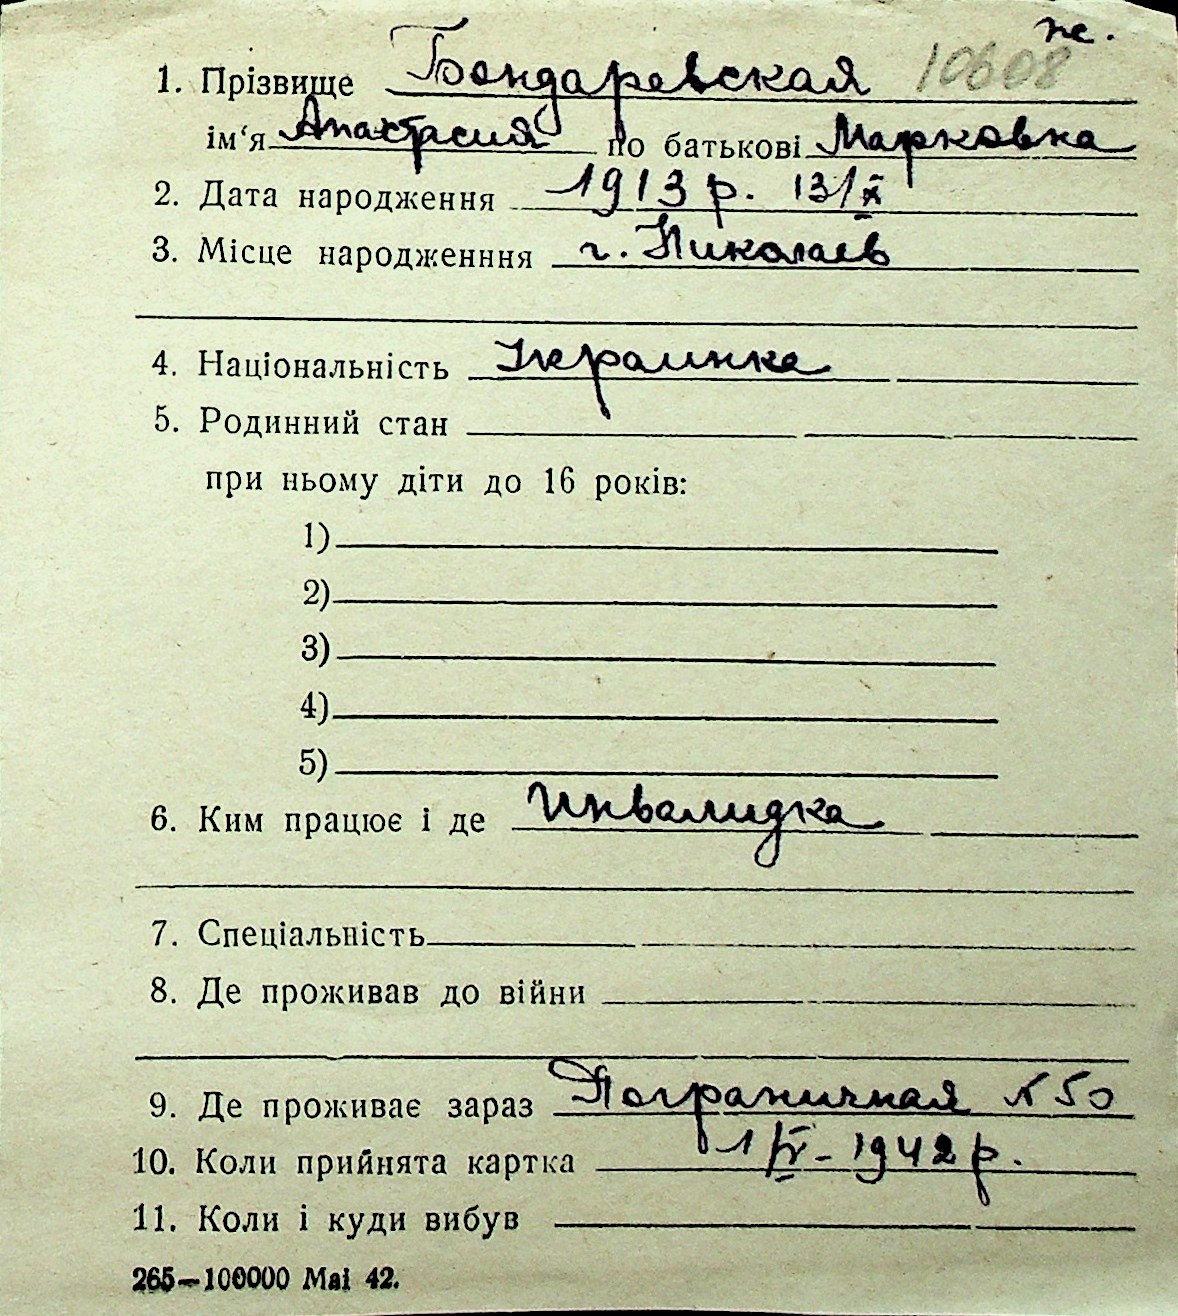 ж.
1. Прізвище Бондаревская 10608
ім‘я Анастасия по батькові Марковна
2. Дата народження 1913 р. 13/X
3. Місце народженння г. Николаев
4. Національність Украинка
5. Родинний стан
при ньому діти до 16 років:
1)
2)
3)
4)
5)
6. Ким працює і де Инвалидка
7. Спеціальність
8. Де проживав до війни
9. Де проживає зараз Пограничная № 50
10. Коли прийнята картка 1/IV - 1942 р.
11. Коли і куди вибув
265—100000 Mai 42.